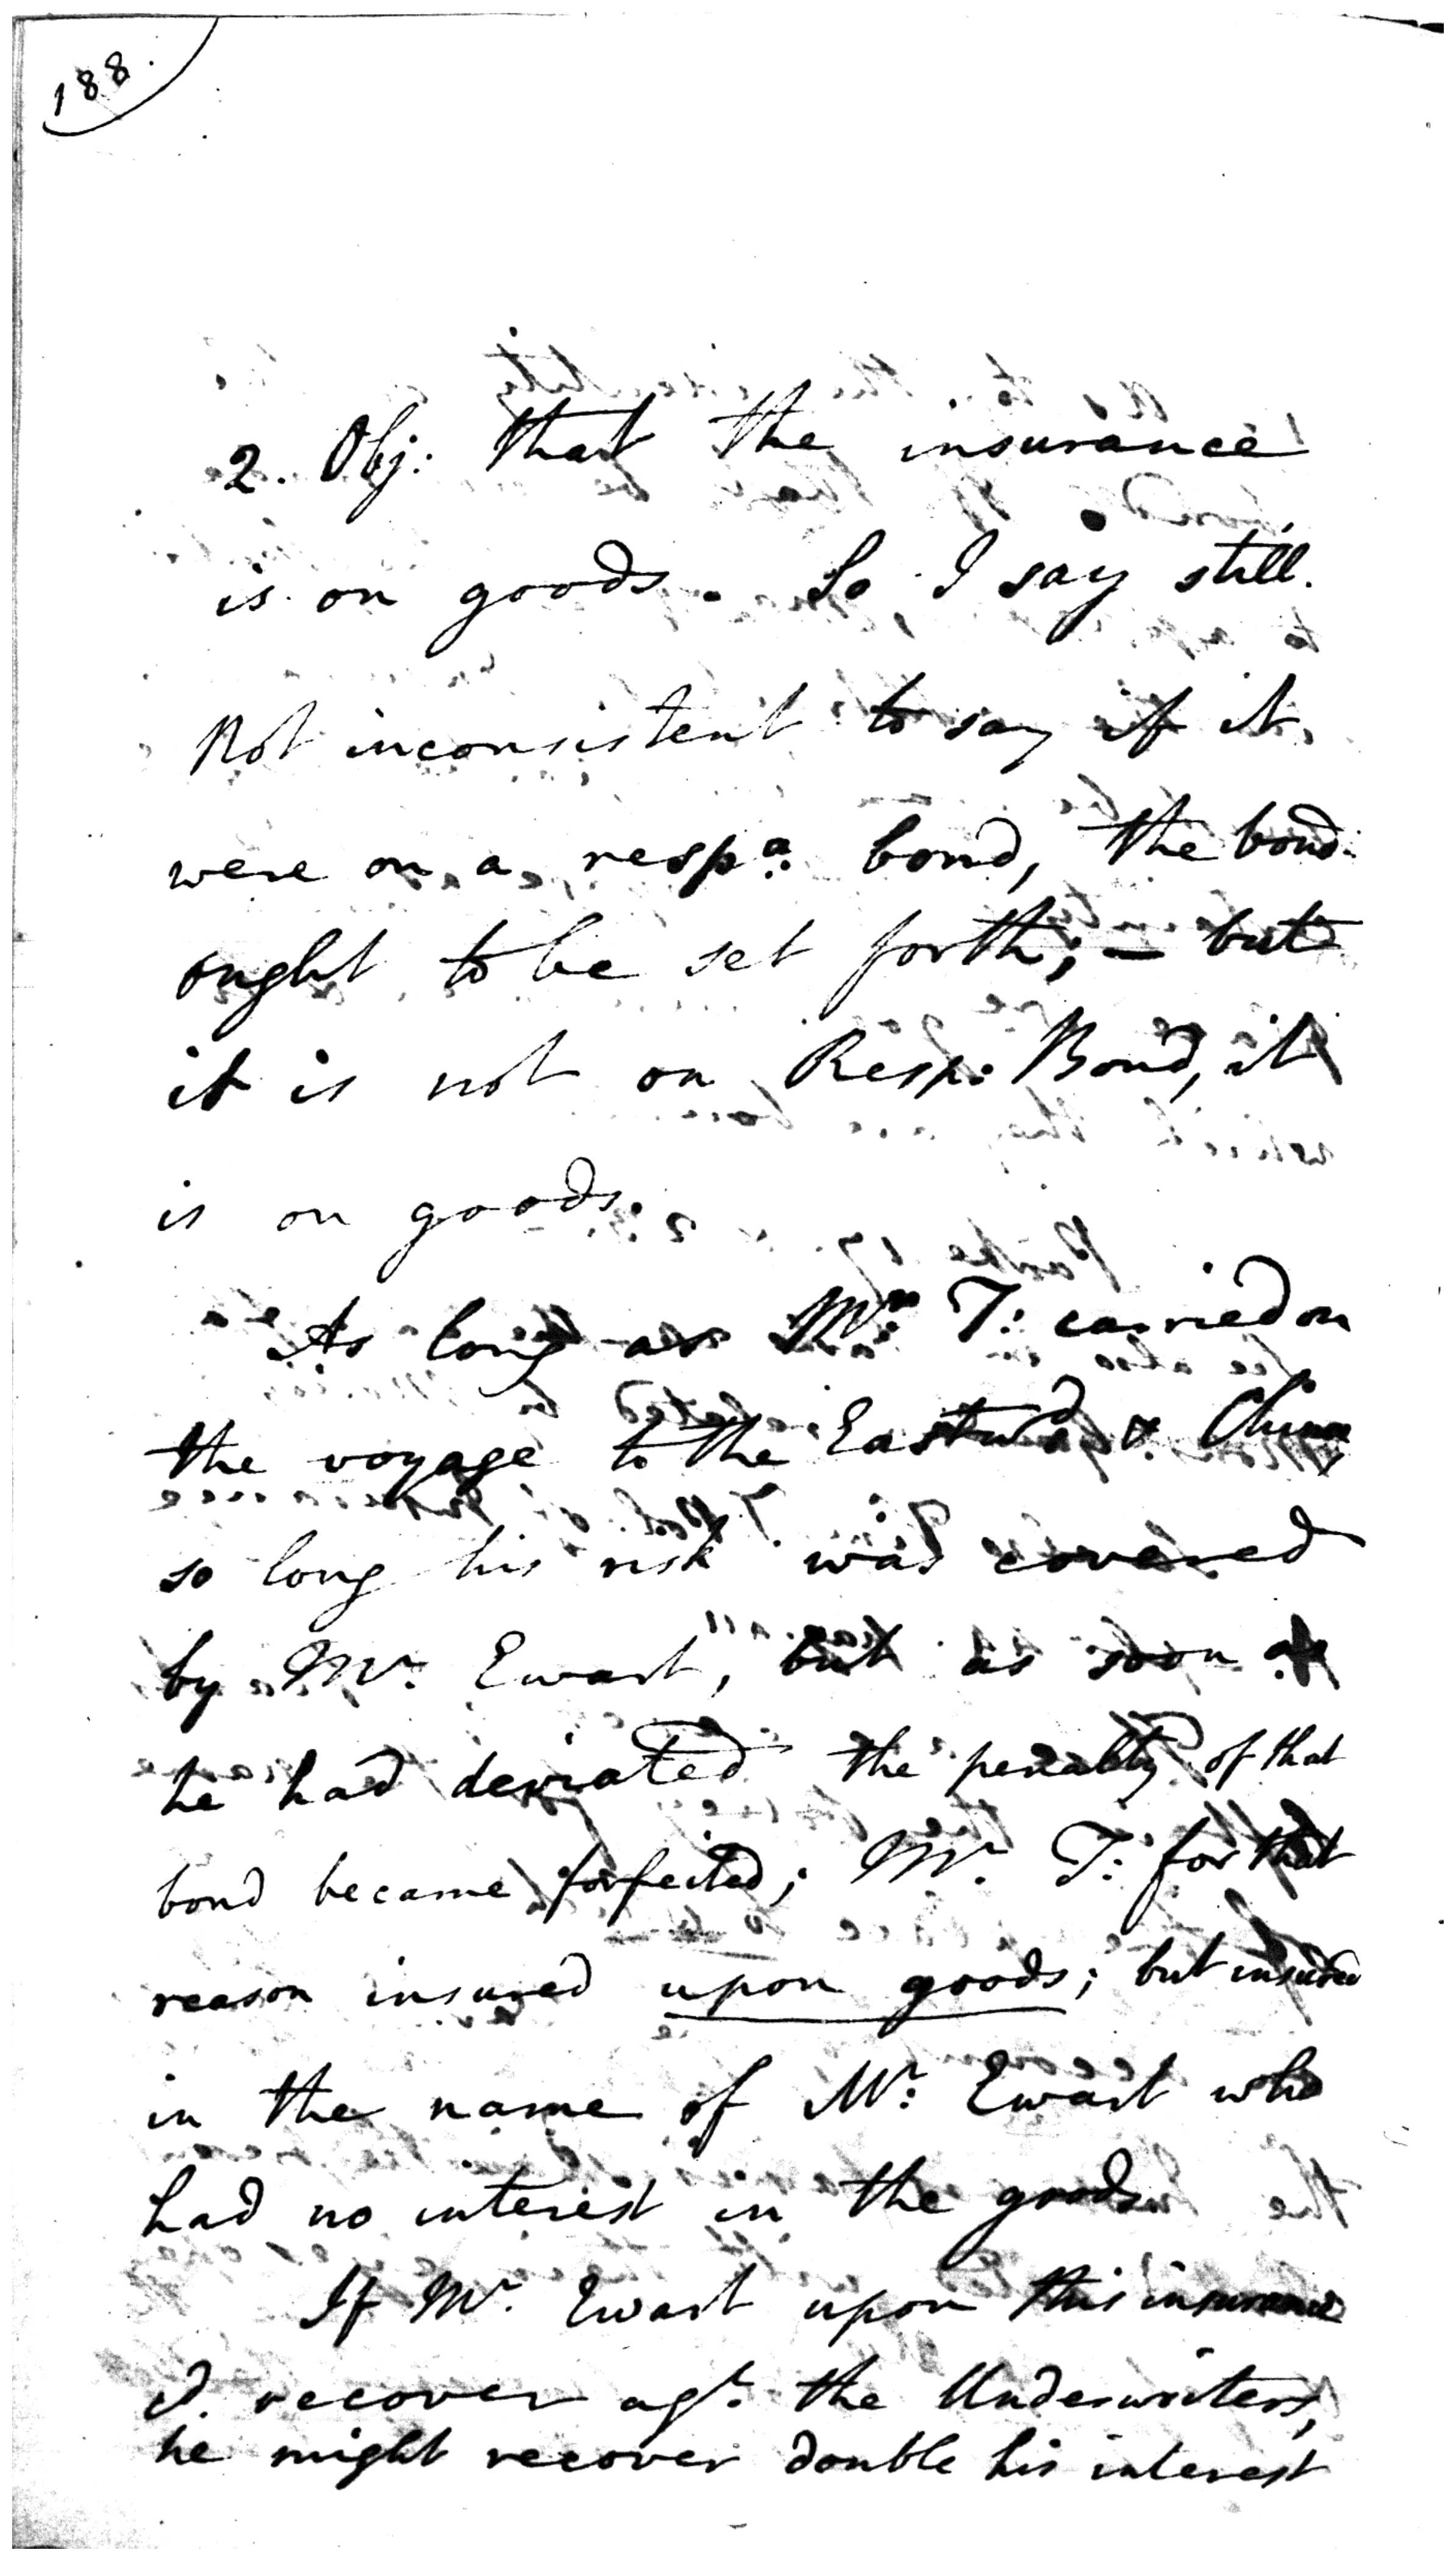 188.
2. Obj: that the insurance
is on goods. So I say still.
Not inconsistent to say if it
were on a respa. bond, the bond
ought to be set forth; — but
it is not on Resp: Bond, it
is on goods.
As long as Mr. T: carried on
the voyage to the Eastwd & China
so long his risk was covered
by Mr. Ewart, but as soon as
he had deviated the penalty of that
bond became forfeited; Mr. T: for that
reason insured upon goods; but insured
in the name of Mr: Ewart who
had no interest in the goods.
If Mr. Ewart upon this insurance
d. recover agt. the Underwriters,
he might recover double his interest